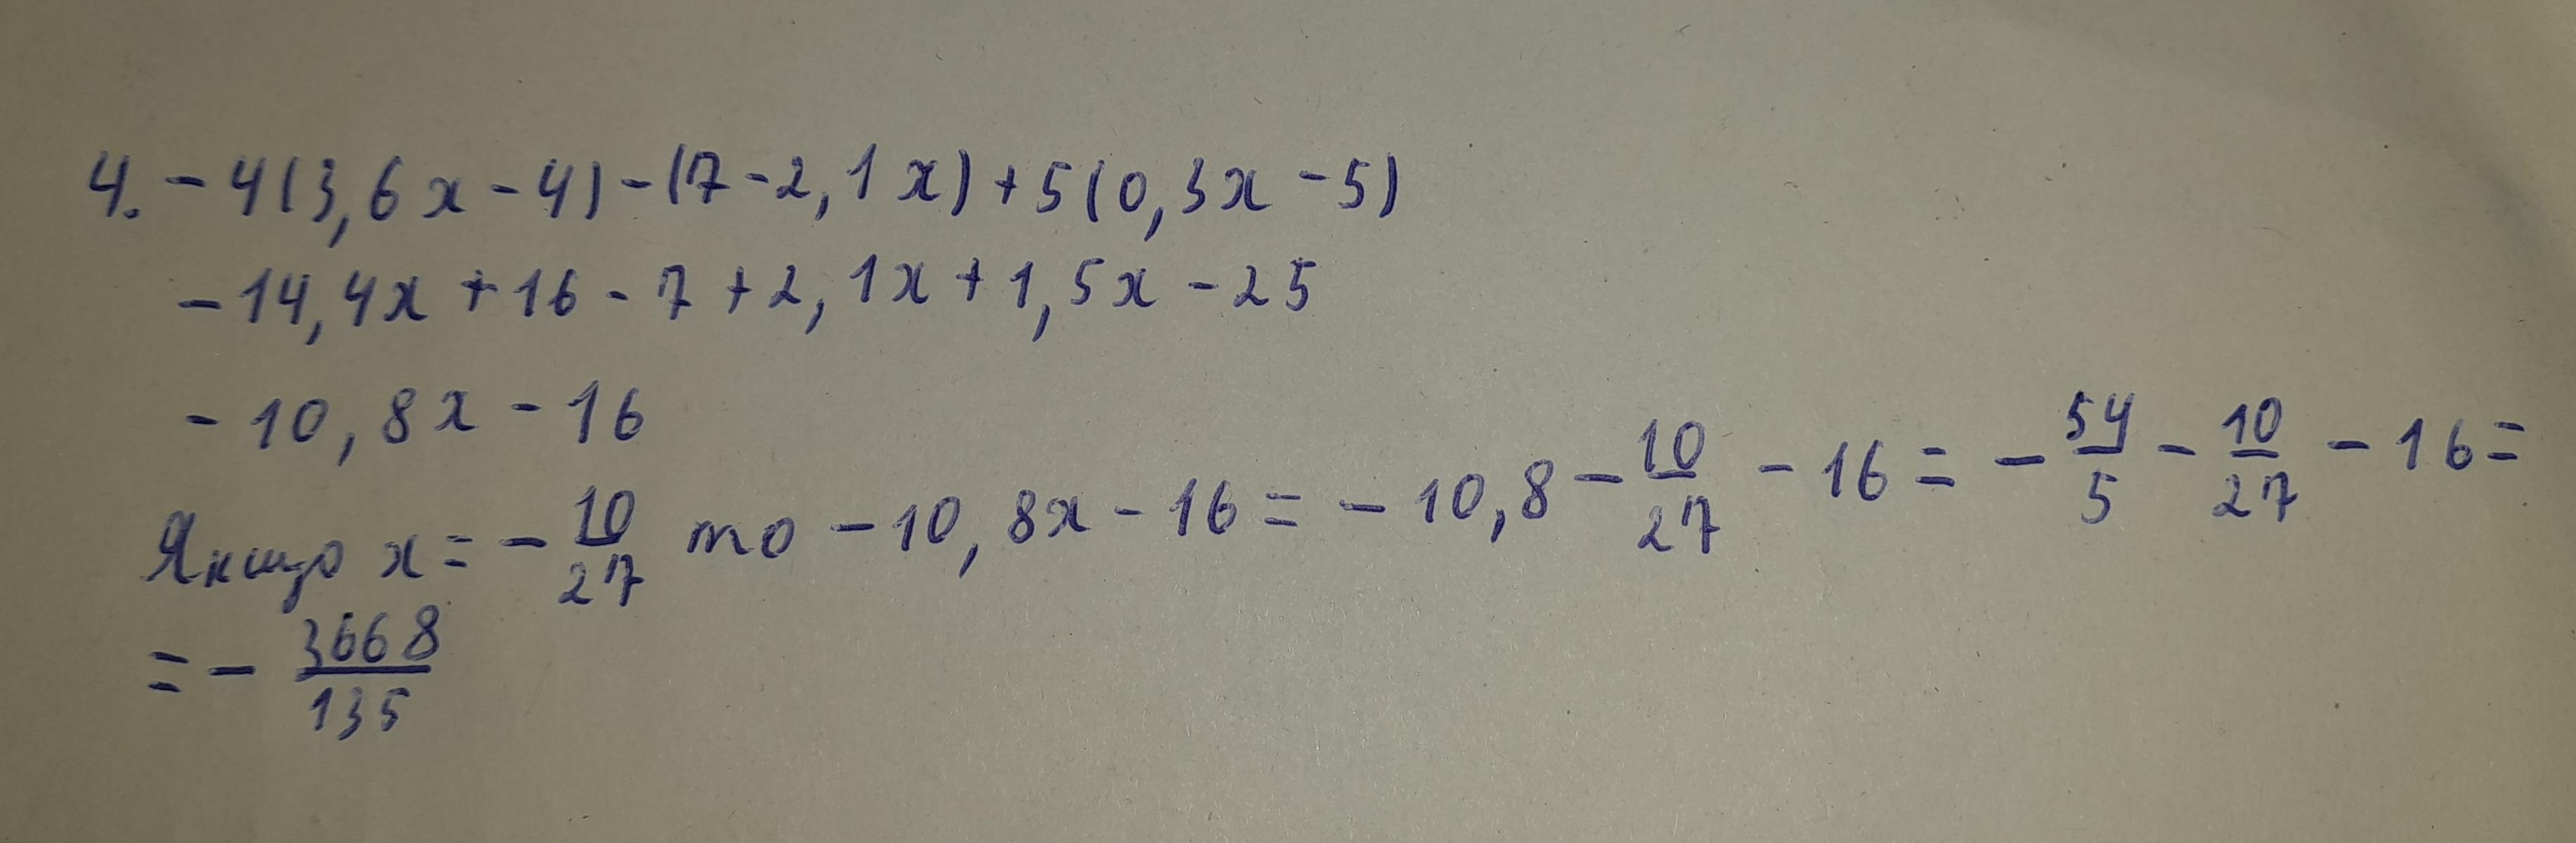 4. - 4(3,6x - 4) - (7 - 2,1x) + 5(0,3x - 5)
- 14,4x + 16 - 7 + 2,1x + 1,5x - 25
- 10,8x - 16
Якщо x = - 10/27 то - 10,8x - 16 = - 10,8 - 10/27 - 16 = - 54/5 - 10/27 - 16 =
= - 3668/135